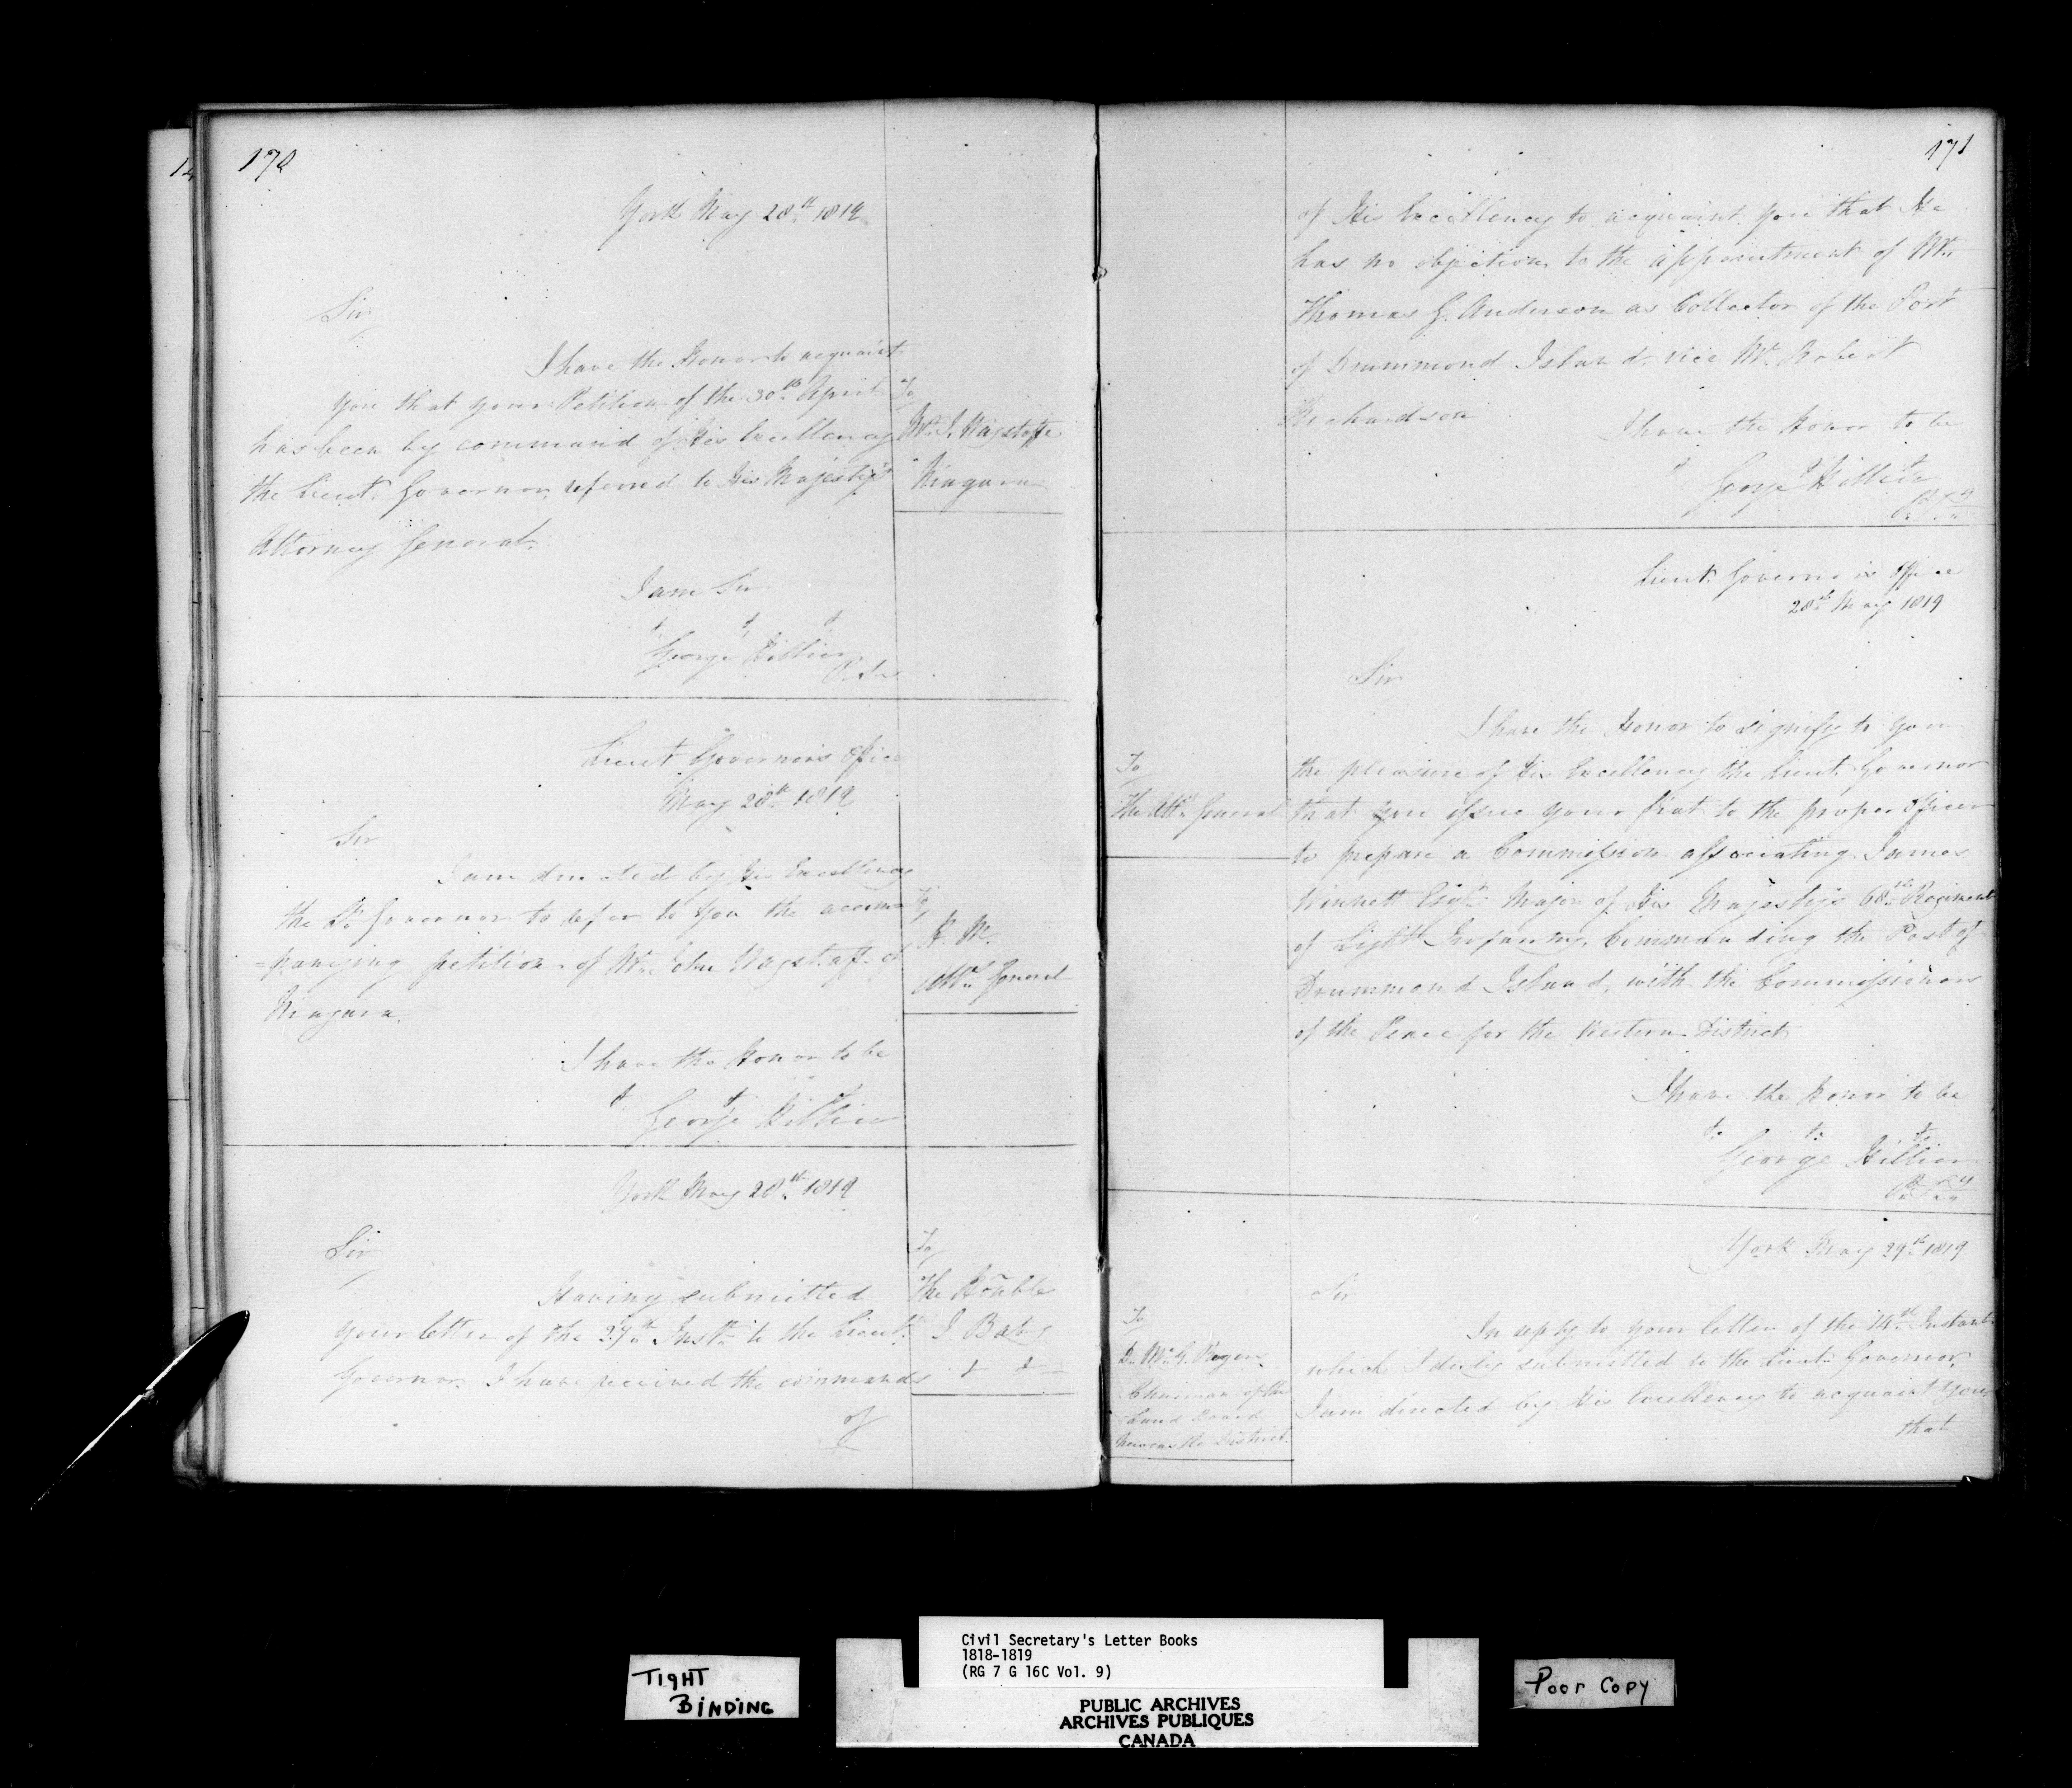 170
York May 28th 1819
Sir
I have the Honor to acquaint
you that your Petition of the 30th April
has been by command of His Excellency
the Lieut. Governor, referred to His Majesty's
Attorney General.
I am Sir
George Hillier
To
Mr. J. Wagstaffe
Niagara
Lieut Governors Office
May 28th 1819
Sir
I am directed by His Excellency
the Lt. Governor to refer to you the accom
=panying petition of Mr. John Wagstaff of
Niagara.
I have the Honor to be
George Hillier
To
H. M.
Atty. General
York May 28th 1819
Sir
Having submitted
your letter of the 27th Inst. to the Lieut.
Governor. I have received the commands
of
To
The Honble
J. Baby
171
of His Excellency to acquaint you that He
has no objection to the appointment of Mr.
Thomas G. Anderson as Collector of the Port
of Drummond Island, vice Mr. Robert
Richardson
I have the Honor to be
George Hillier
Lieut. Governors Office
28th May 1819
Sir
I have the Honor to signify to you
the pleasure of His Excellency the Lieut. Governor
that you issue your fiat to the proper Officer
to prepare a Commission associating James
Winnett Esqr. Major of His Majesty's 68th Regiment
of Light Infantry, Commanding the Post of
Drummond Island, with the Commissioners
of the Peace for the Western District
I have the Honor to be
George Hillier
P. Secy
To
The Atty. General
York May 29th 1819
Sir
In reply to your letter of the 14th Instant
which I duly submitted to the Lieut. Governor,
I am directed by His Excellency to acquaint you
that
To
D. McG. Rogers
Chairman of the
Land Board
Newcastle District
TIGHT
BINDING
Civil Secretary's Letter Books
1818-1819
(RG 7 G 16C Vol. 9)
PUBLIC ARCHIVES
ARCHIVES PUBLIQUES
CANADA
Poor Copy